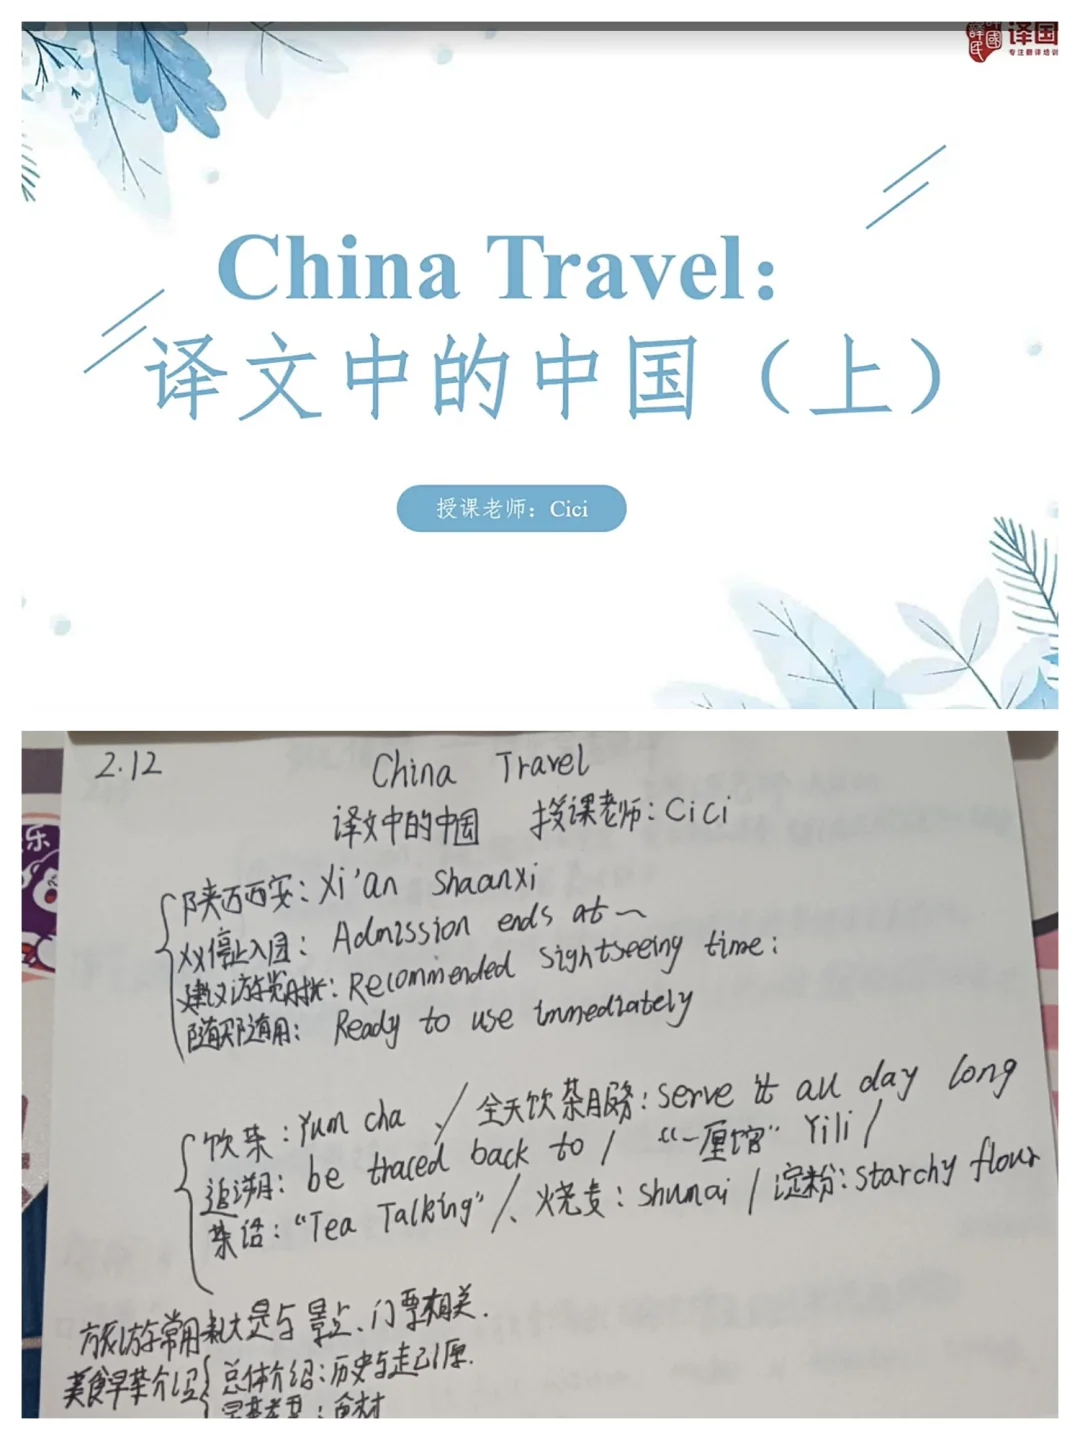 译国
专注翻译培训
China Travel:
译文中的中国（上）
授课老师：Cici
2.12
China Travel
译文中的中国 授课老师：Cici
乐
陕西西安：Xi'an Shaanxi
XX停止入园：Admission ends at ~
建议游览时长：Recommended Sightseeing time：
随买随用：Ready to use immediately
饮茶：Yum cha / 全天饮茶服务：serve it all day long
追溯：be traced back to / “一厘馆” Yili /
茶话：“Tea Talking” / 烧麦：Shumai / 淀粉：starchy flour
旅游常用 大是与景点、门票相关.
美食早茶介绍 总体介绍：历史与起源.
早茶 食材